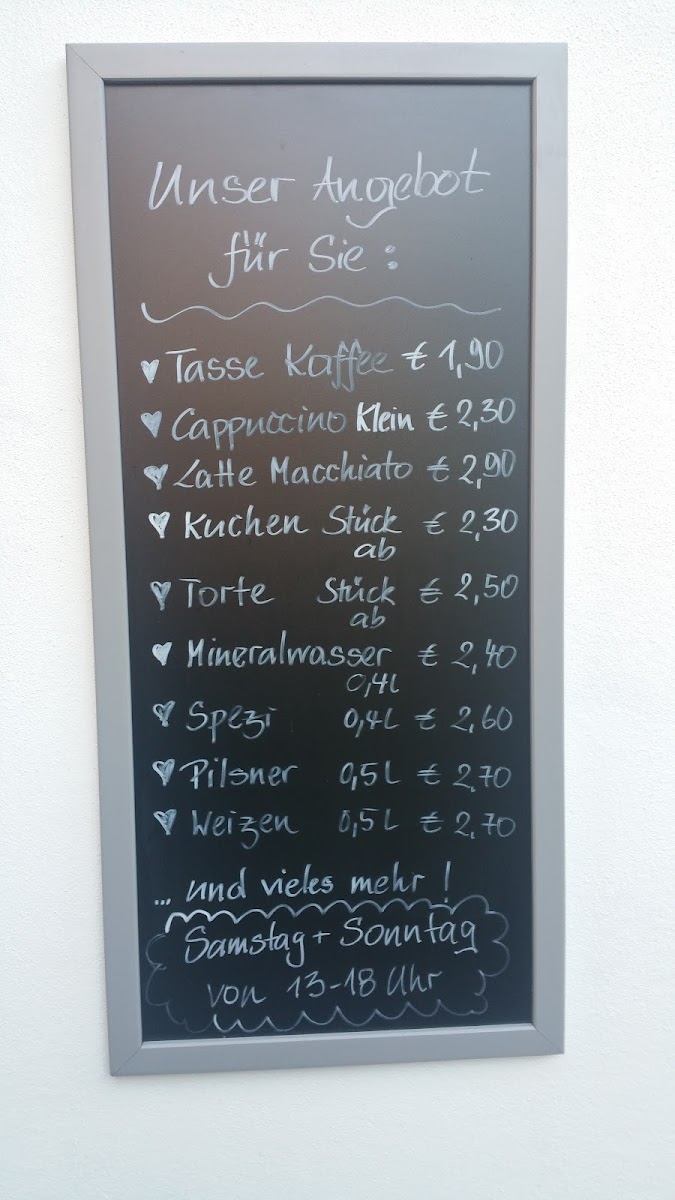 Unser Angebot
für Sie :
Tasse Kaffee € 1,90
Cappuccino Klein € 2,30
Latte Macchiato € 2,90
Kuchen Stück € 2,30
ab
Torte Stück € 2,50
ab
Mineralwasser € 2,40
0,4L
Spezi 0,4L € 2,60
Pilsner 0,5L € 2,70
Weizen 0,5L € 2,70
... und vieles mehr !
Samstag + Sonntag
von 13-18 Uhr